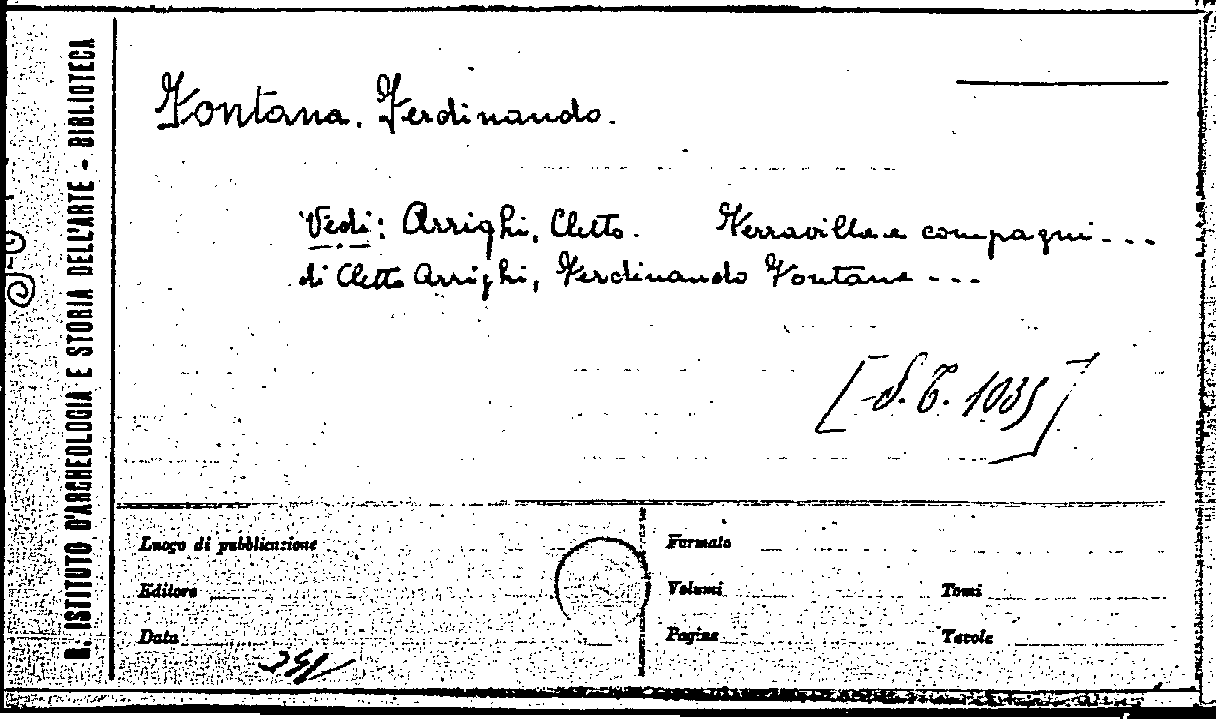 R. ISTITUTO D'ARCHEOLOGIA E STORIA DELL'ARTE - BIBLIOTECA
Fontana. Ferdinando.
Vedi: Arrighi, Cletto. Ferravilla e compagni...
di Cletto Arrighi, Ferdinando Fontana ...
[S. T. 1035]
Luogo di pubblicazione
Formato
Editore
Volumi
Tomi
Data
Pagine
Tavole